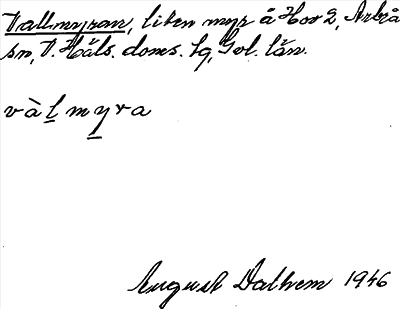 Vallmyran, liten myr å Hov 2, Arbrå
sn, V. Häls. doms. lg, Gvl. län.
vàlmyra
August Dalhem 1946